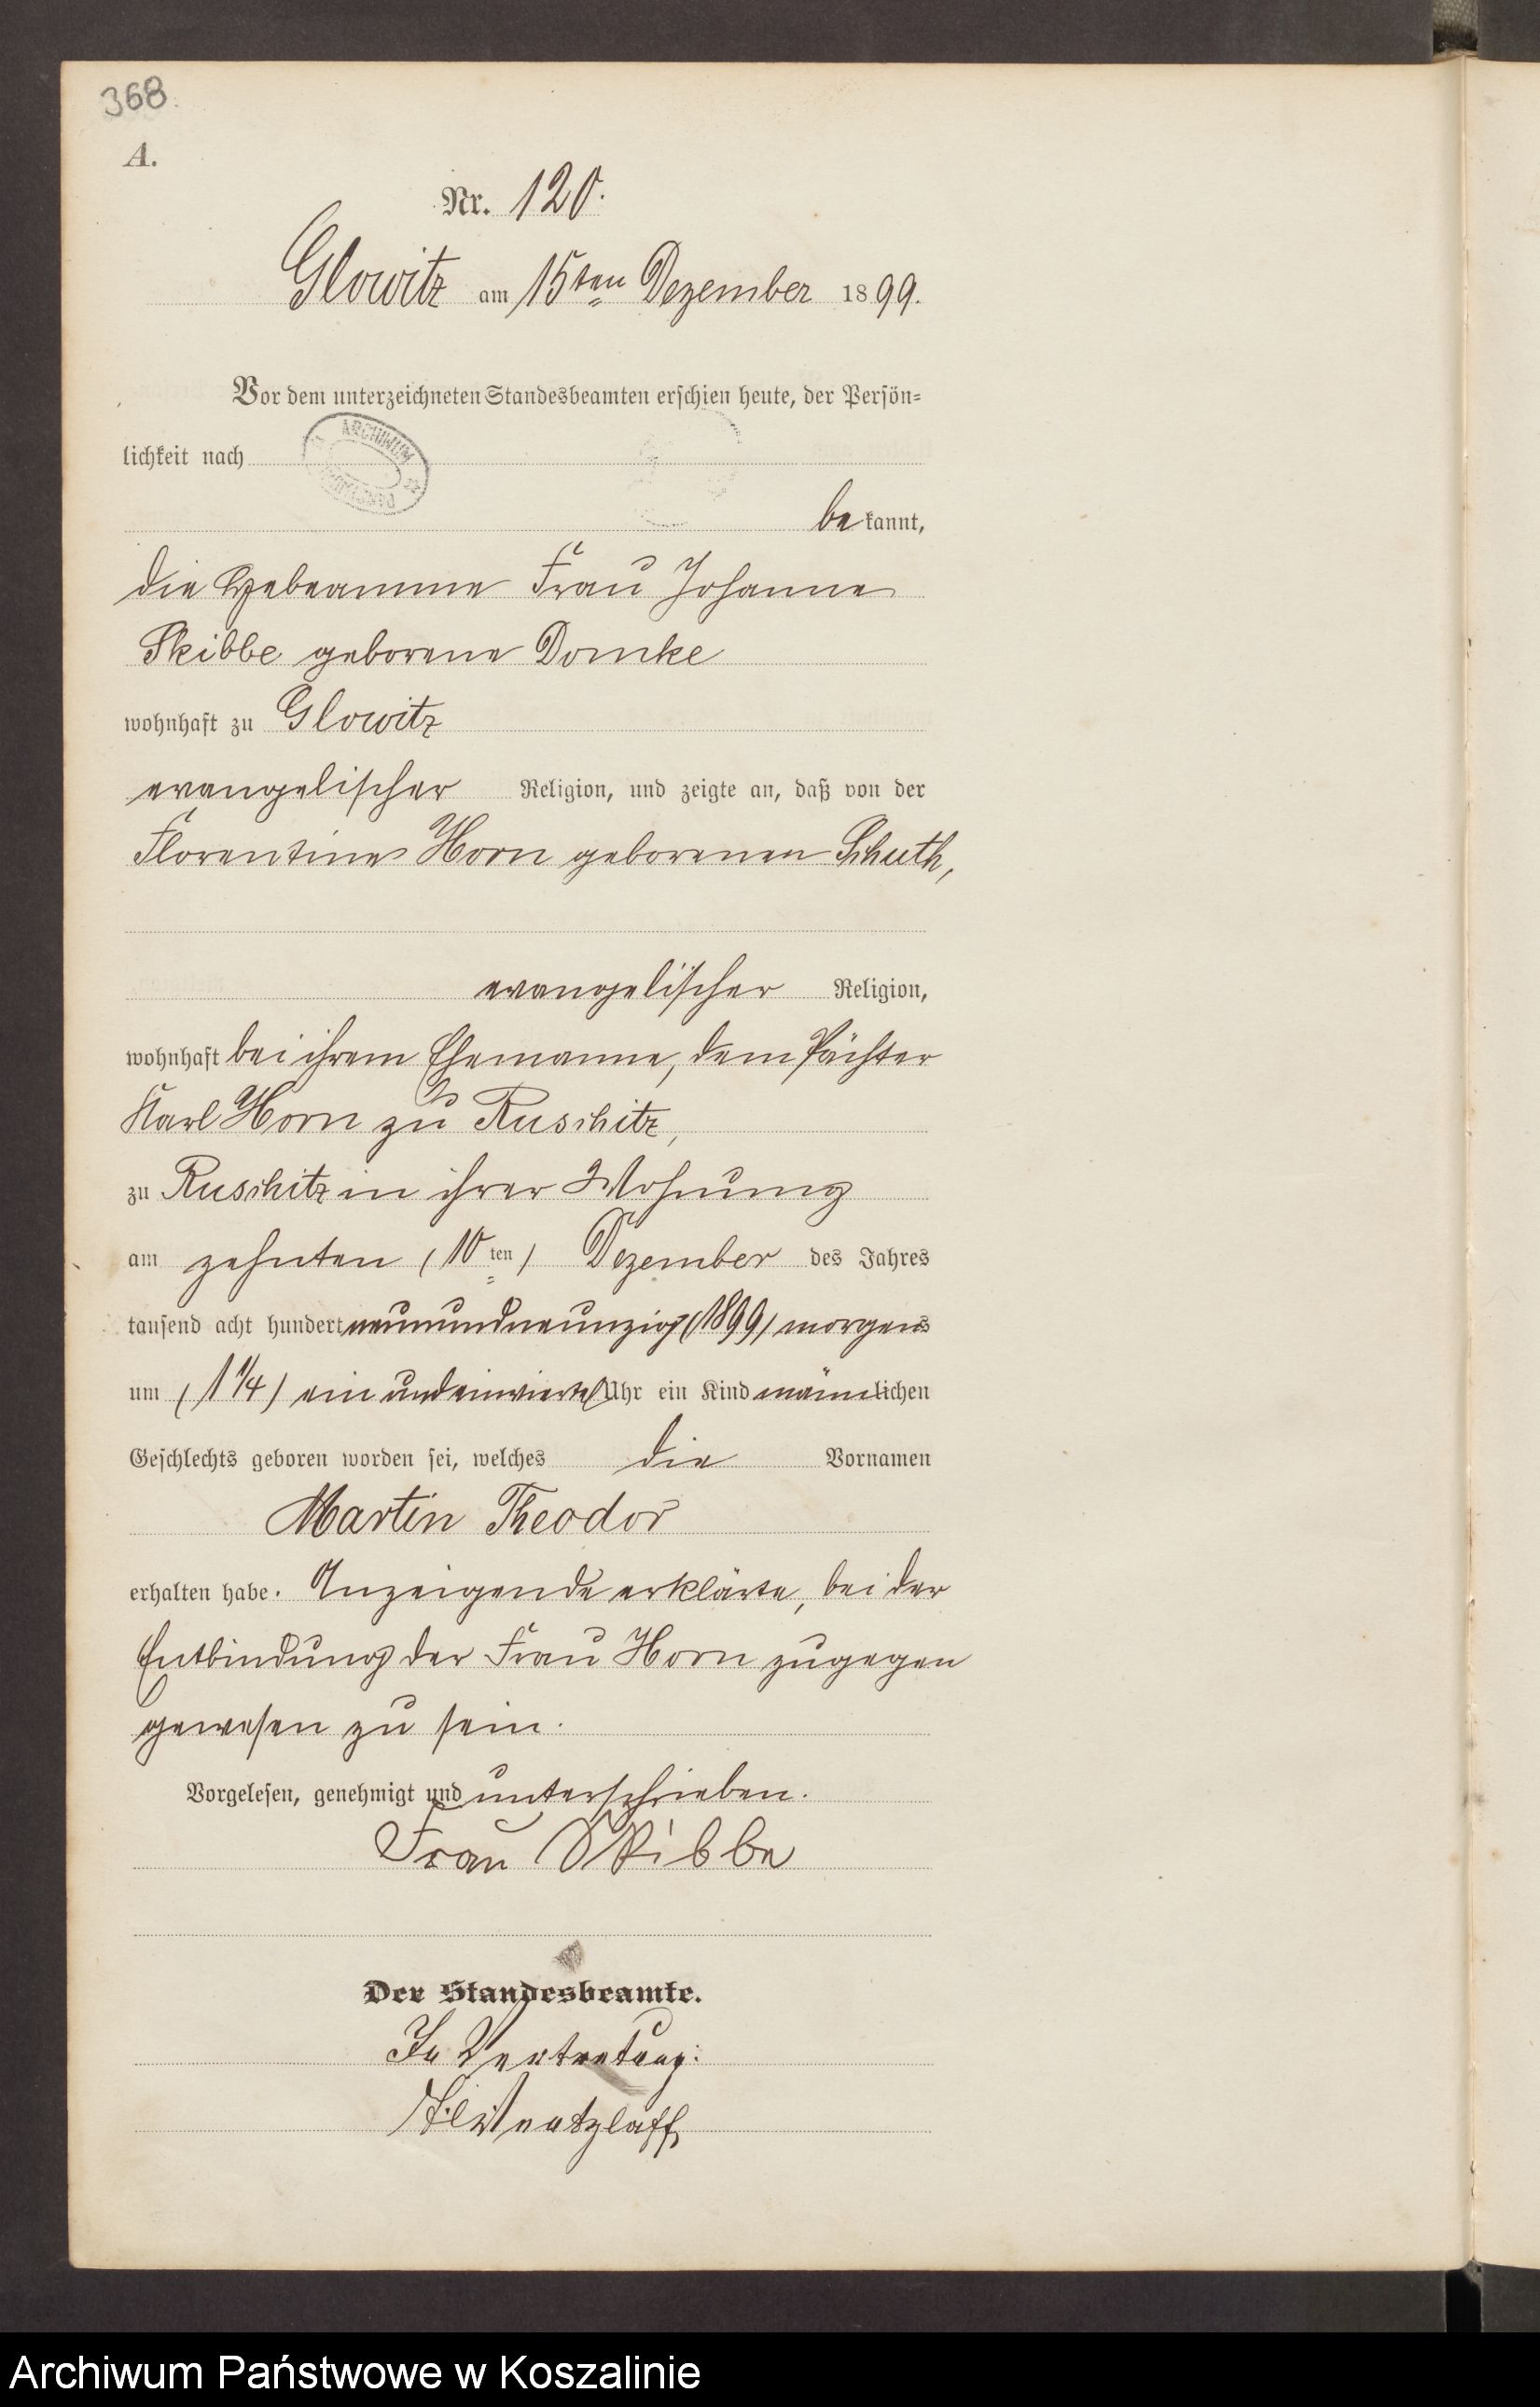 368.
A.
Nr. 120.
Glowitz am 15ten Dezember 1899.
Vor dem unterzeichneten Standesbeamten erschien heute, der Persön-
lichkeit nach
ARCHIWUM
bekannt,
die Hebeamme Frau Johanne
Skibbe geborene Domke
wohnhaft zu Glowitz
evangelischer Religion, und zeigte an, daß von der
Florentine Horn geborenen Schuth,
evangelischer Religion,
wohnhaft bei ihrem Ehemanne, dem Pächter
Karl Horn zu Ruschitz,
zu Ruschitz in ihrer Wohnung
am zehnten (10ten) Dezember des Jahres
tausend acht hundert neunundneunzig (1899) morgens
um (1 1/4) ein und einviertel Uhr ein Kind männlichen
Geschlechts geboren worden sei, welches die Vornamen
Martin Theodor
erhalten habe. Anzeigende erklärte, bei der
Entbindung der Frau Horn zugegen
gewesen zu sein.
Vorgelesen, genehmigt und unterschrieben.
Frau Skibbe
Der Standesbeamte.
In Vertretung:
Wentzlaff
Archiwum Państwowe w Koszalinie